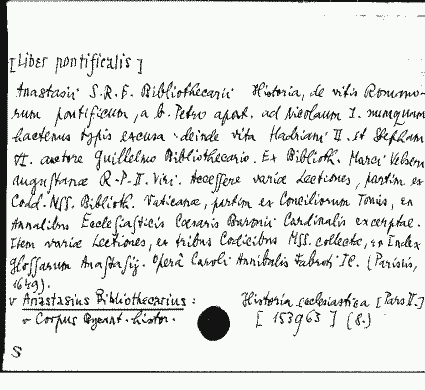 [Liber pontificalis]
Anastasii S.R.E. Bibliothecarii Historia, de vitis Romano-
rum pontificum, a b. Petro apost. ad Nicolaum I. nunquam
hactenus typis excusa. deinde vita Hadriani II. et Stephani
VI. auctore Guillelmo Bibliothecario. Ex Biblioth. Marci Velseri
augustanae R.P. II. Viri. Accessere variae Lectiones, partim ex
Codd. MSS. Biblioth. Vaticanae, partim ex Conciliorum Tomis, ex
Annalibus Ecclesiasticis Caesaris Baronii Cardinalis excerptae.
Item variae Lectiones, ex tribus Codicibus MSS. collectae, et Index
glossarum Anastasij. Operâ Caroli Annibalis Fabroti IC. (Parisiis,
1649).
v Anastasius Bibliothecarius: Historia ecclesiastica [Pars II.]
v Corpus Byzant. histor. [153963] (8.)
S